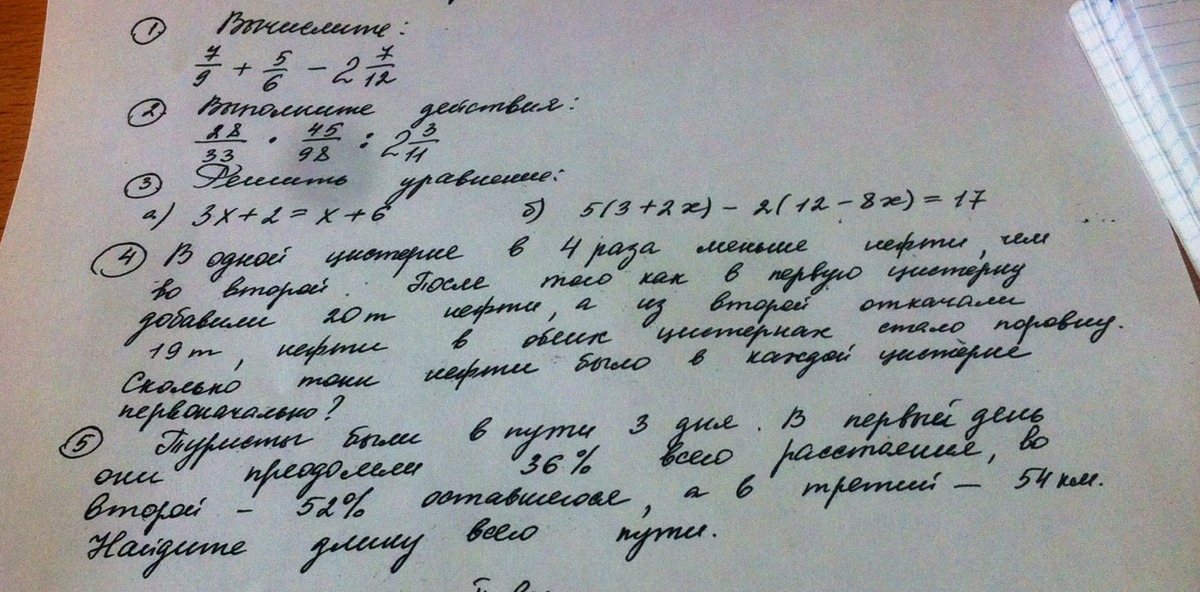 ① Вычислите:
7/9 + 5/6 - 2 7/12
② Выполните действия:
28/33 · 45/98 : 2 3/11
③ Решить уравнение:
а) 3x+2 = x+6 б) 5(3+2x) - 2(12-8x) = 17
④ В одной цистерне в 4 раза меньше нефти, чем
во второй. После того как в первую цистерну
добавили 20т нефти, а из второй откачали
19т, нефти в обеих цистернах стало поровну.
Сколько тонн нефти было в каждой цистерне
первоначально?
⑤ Туристы были в пути 3 дня. В первый день
они преодолели 36% всего расстояния, во
второй - 52% оставшегося, а в третий - 54 км.
Найдите длину всего пути.